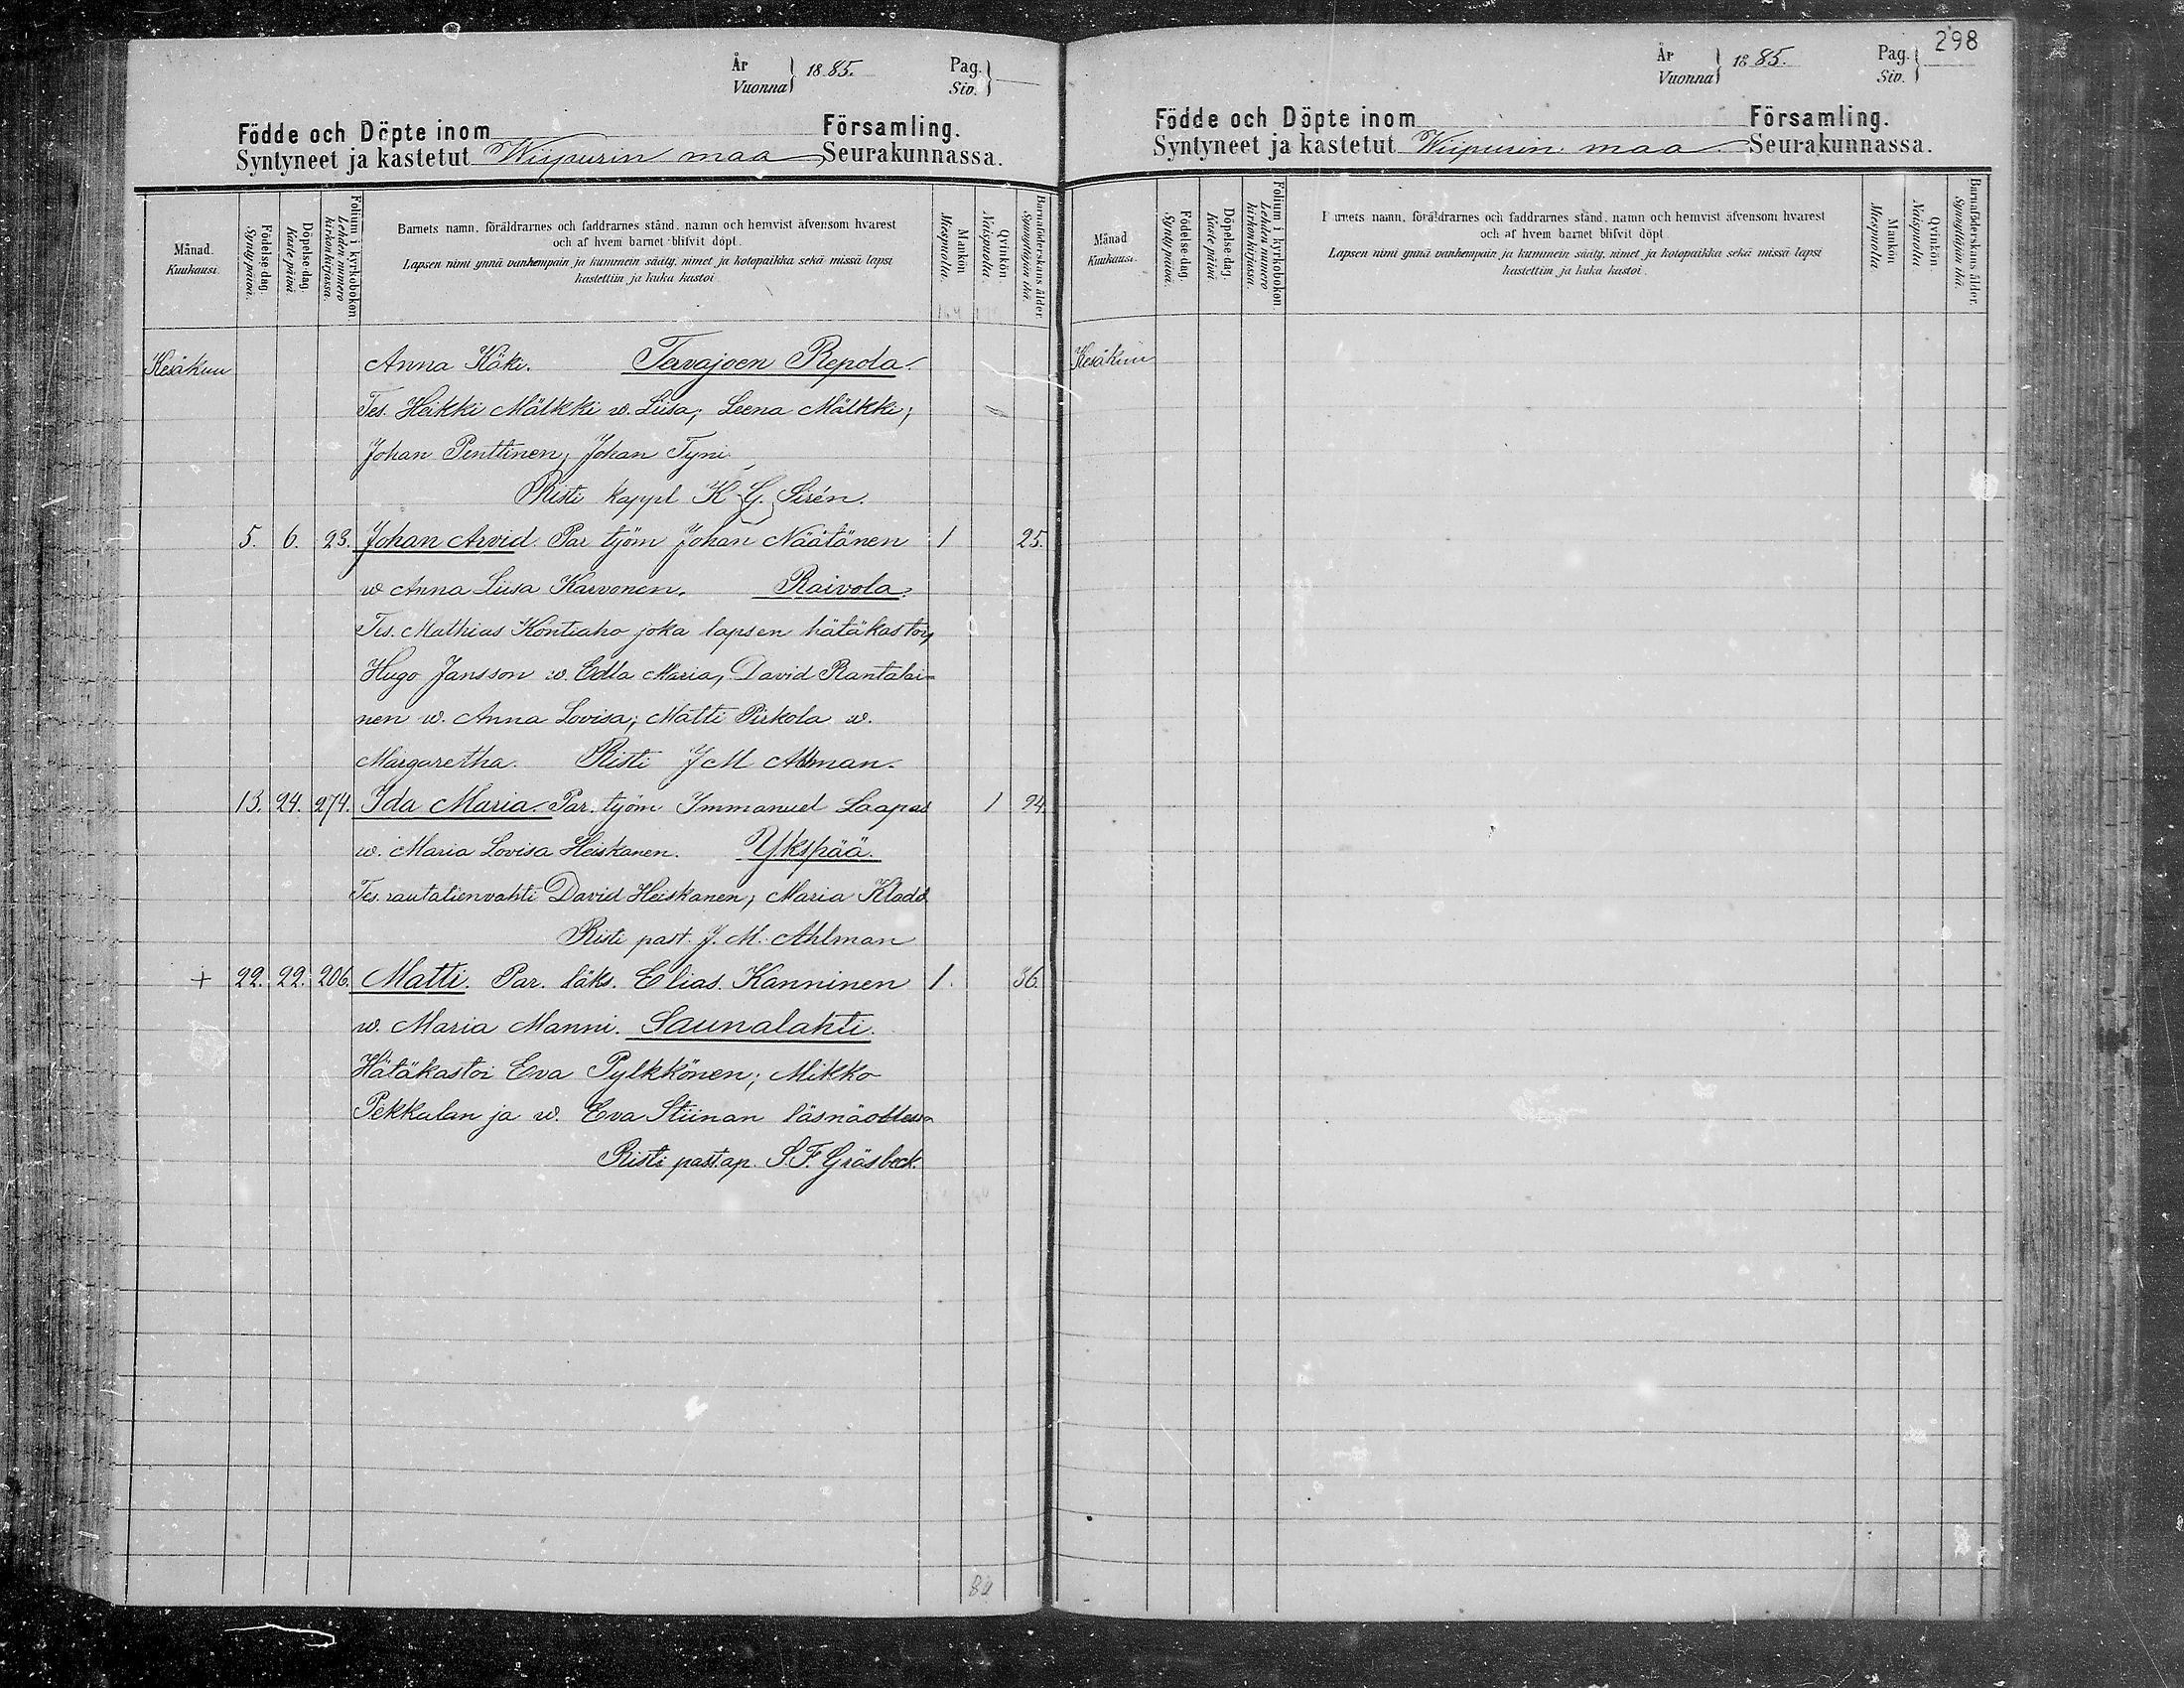 År
Vuonna } 1885.
Pag.
Siv. }
Födde och Döpte inom Församling.
Syntyneet ja kastetut Wiipurin maa Seurakunnassa.
Månad.
Kuukausi.
Födelse-dag.
Syntypäivä.
Döpelse-dag.
Kastepäivä
Folium i kyrkobokon
Lehden numero kirkonkirjassa.
Barnets namn, föräldrarnes och faddrarnes stånd, namn och hemvist äfvensom hvarest
och af hvem barnet blifvit döpt.
Lapsen nimi ynnä vanhempain ja kummein sääty, nimet ja kotopaikka sekä missä lapsi
kastettiin ja kuka kastoi.
Mankön
Miespuolta.
Qvinkön.
Naispuolta.
Barnaföderskans ålder.
Synnyttäjän ikä.
Kesäkuu Anna Käki. Tervajoen Repola.
Tes. Heikki Mälkki w. Liisa; Leena Mälkki;
Johan Penttinen; Johan Tyni
Risti kappl K G. Sirén.
5. 6. 23. Johan Arvid. Par työm Johan Näätänen 1 25.
w Anna Liisa Karvonen. Raivola.
Tes. Mathias Kontiaho joka lapsen hätäkastoi,
Hugo Jansson w. Edla Maria, David Rantalai=
nen w. Anna Lovisa; Matti Pirkola w.
Margaretha. Risti J M Ahlman.
13. 24. 274. Ida Maria. Par. työm Immanuel Laapas 1 24.
w. Maria Lovisa Heiskanen. Ykspää.
Tes. rautatienvahti David Heiskanen; Maria Kladd
Risti past. J. M. Ahlman
+ 22. 22. 206. Matti. Par. läks. Elias Kanninen 1. 36.
w. Maria Manni. Saunalahti.
Hätäkastoi Eva Pylkkönen; Mikko
Pekkalan ja w. Eva Stiinan läsnäollessa
Risti past.ap. S.F. Gräsbeck.
298
År
Vuonna } 1885.
Pag.
Siv. }
Födde och Döpte inom Församling.
Syntyneet ja kastetut Wiipurin maa Seurakunnassa.
Månad
Kuukausi.
Födelse-dag.
Syntypäivä.
Döpelse-dag.
Kastepäivä.
Folium i kyrkobokon.
Lehden numero kirkonkirjassa.
Barnets namn, föräldrarnes och faddrarnes stånd, namn och hemvist äfvensom hvarest
och af hvem barnet blifvit döpt
Lapsen nimi ynnä vanhempain ja kummein sääty, nimet ja kotopaikka sekä missä lapsi
kastettiin ja kuka kastoi.
Mankön
Miespuolta.
Qvinkön.
Naispuolta
Barnaföderskans ålder.
Synnyttäjän ikä.
Kesäkuu